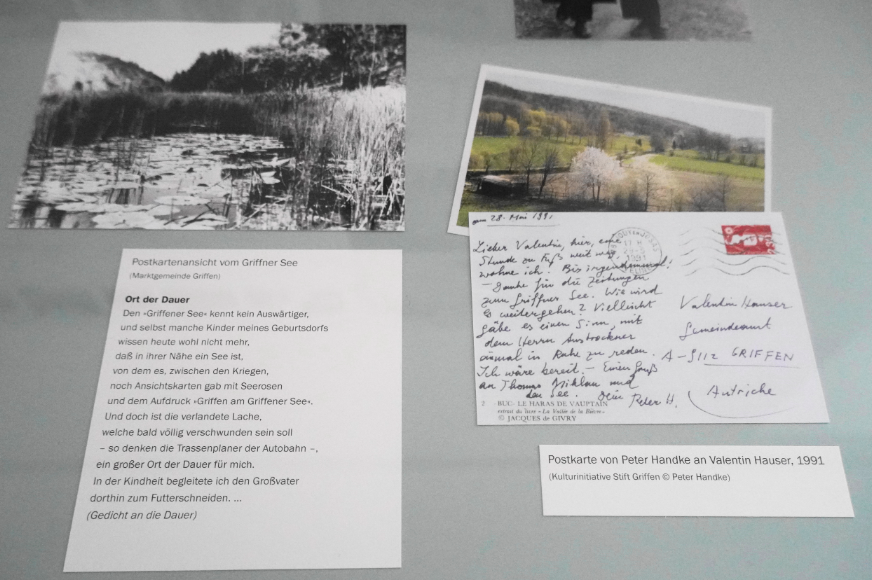 Postkartenansicht vom Griffner See
(Marktgemeinde Griffen)
Ort der Dauer
Den »Griffener See« kennt kein Auswärtiger,
und selbst manche Kinder meines Geburtsdorfs
wissen heute wohl nicht mehr,
daß in ihrer Nähe ein See ist,
von dem es, zwischen den Kriegen,
noch Ansichtskarten gab mit Seerosen
und dem Aufdruck »Griffen am Griffener See«.
Und doch ist die verlandete Lache,
welche bald völlig verschwunden sein soll
– so denken die Trassenplaner der Autobahn –,
ein großer Ort der Dauer für mich.
In der Kindheit begleitete ich den Großvater
dorthin zum Futterschneiden. ...
(Gedicht an die Dauer)
am 28. Mai 1991
Lieber Valentin, hier, eine
Stunde zu Fuß weit weg,
wohne ich. Bis irgendeinmal!
– Danke für die Zeitungen
zum Griffner See. Wie wird
es weitergehen? Vielleicht
gäbe es einen Sinn, mit
dem Herrn Austrockner
einmal in Ruhe zu reden.
Ich wäre bereit. – Einen Gruß
an Thomas und
den See. Dein Peter H.
Valentin Hauser
Gemeindeamt
A-9112 GRIFFEN
Autriche
2 -BUC- LE HARAS DE VAUPTAIN
extrait du livre «La Vallée de la Bièvre»
© JACQUES de GIVRY
Postkarte von Peter Handke an Valentin Hauser, 1991
(Kulturinitiative Stift Griffen © Peter Handke)